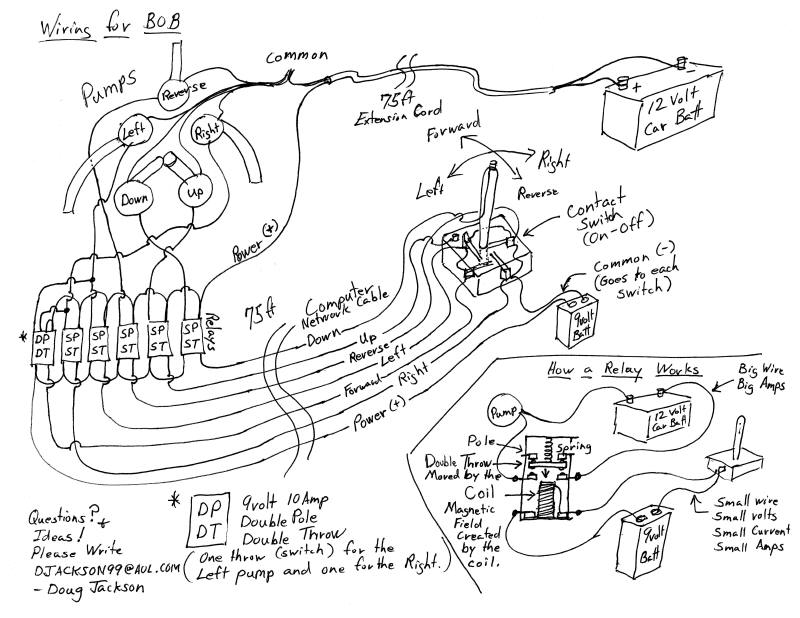 Wiring for BOB
Common
Pumps
Reverse
Left
Right
Down
Up
75ft
Extension Cord
+
-
12 Volt
Car Batt
Forward
Right
Left
Reverse
Contact
Switch
(On-Off)
Common (-)
(Goes to each
switch)
9volt
Batt
Power (+)
75ft
Computer
Network Cable
Down
Up
Reverse
Left
Forward
Right
Power (+)
Relays
*
DP
DT
SP
ST
SP
ST
SP
ST
SP
ST
SP
ST
How a Relay Works
Big Wire
Big Amps
Pump
12 Volt
Car Batt
Pole
Spring
Double Throw
Moved by the
Coil
Magnetic
Field
Created
by the
coil.
9volt
Batt
Small wire
Small volts
Small Current
Small Amps
*
DP
DT
9volt 10Amp
Double Pole
Double Throw
(One throw (switch) for the
Left pump and one for the Right.)
Questions?
Ideas!
Please Write
DJACKSON99@AUL.COM
- Doug Jackson